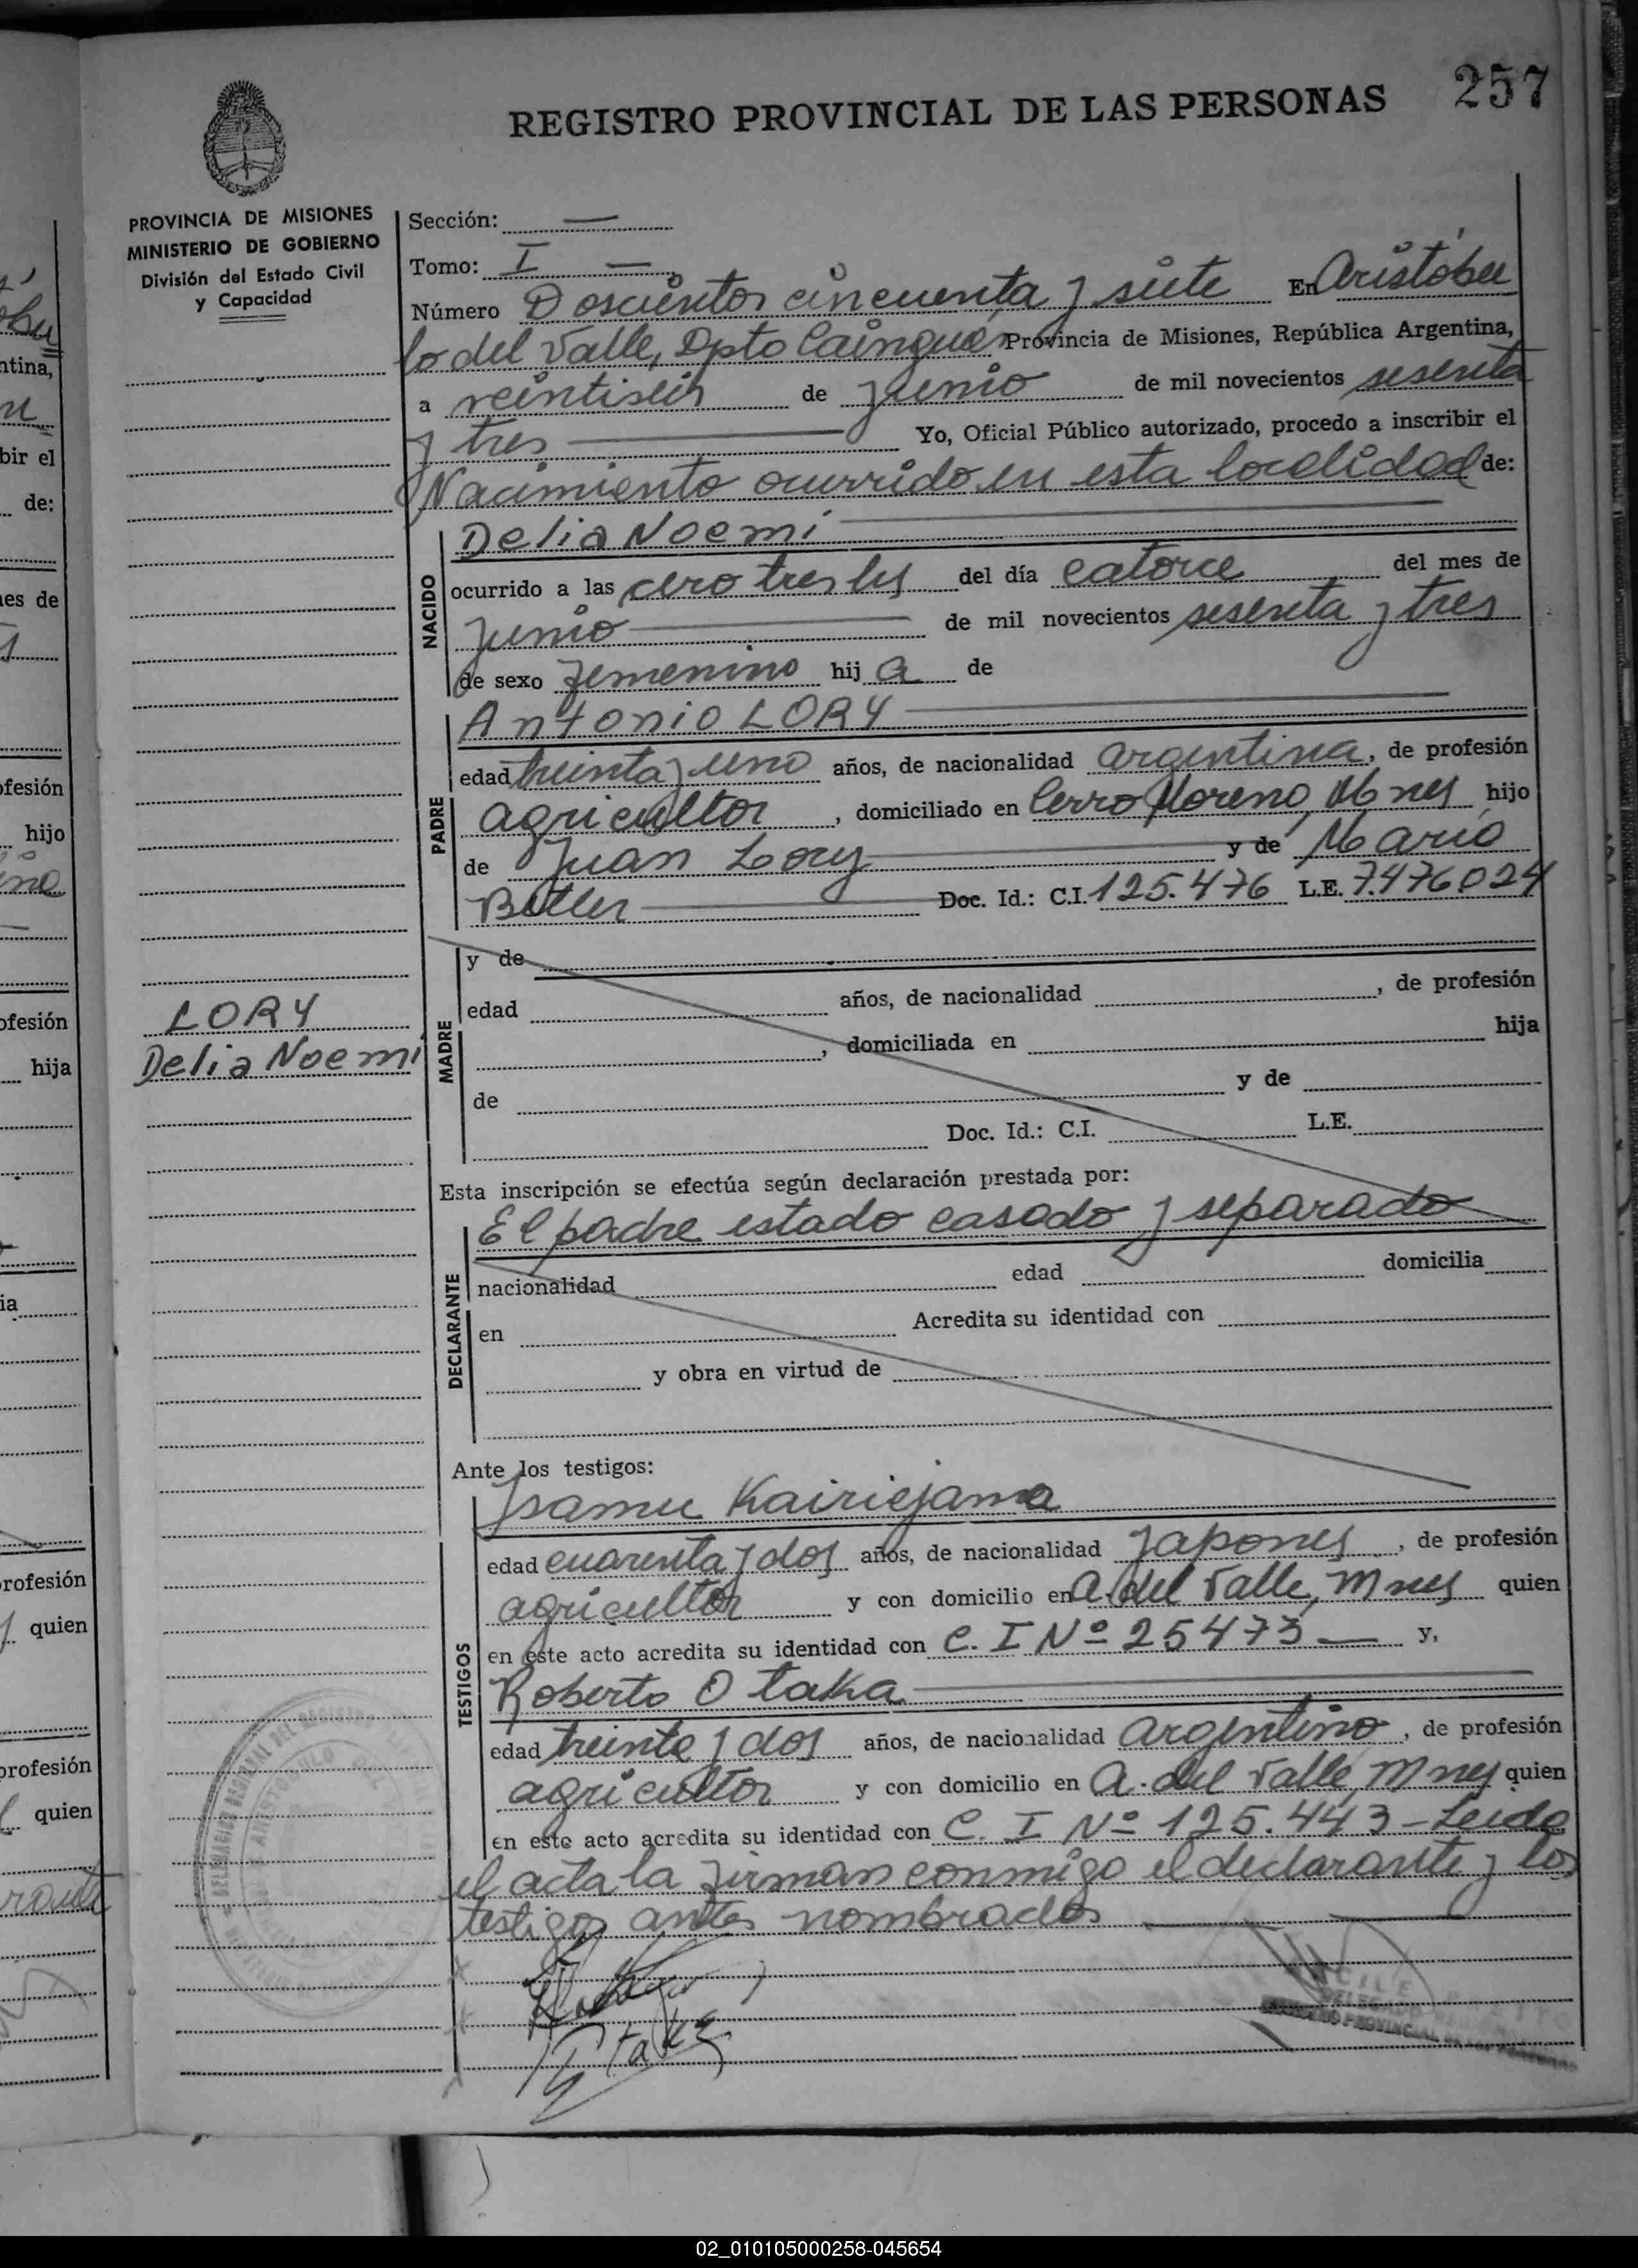 257
REGISTRO PROVINCIAL DE LAS PERSONAS
PROVINCIA DE MISIONES
MINISTERIO DE GOBIERNO
División del Estado Civil
y Capacidad
Sección: —
Tomo: I —
Número Doscientos cincuenta y siete En Aristóbu
lo del Valle, Dpto Cainguás Provincia de Misiones, República Argentina,
a veintiseis de junio de mil novecientos sesenta
y tres Yo, Oficial Público autorizado, procedo a inscribir el
Nacimiento ocurrido en esta localidad de:
NACIDO
Delia Noemí
ocurrido a las cero tres hs del día catorce del mes de
junio de mil novecientos sesenta y tres
de sexo femenino hij a de
PADRE
Antonio LORY
edad treinta y uno años, de nacionalidad argentina, de profesión
agricultor, domiciliado en Cerro Moreno, Mnes hijo
de Juan Lory y de Maria
Doc. Id.: C.I. 125.476 L.E. 7.476024
MADRE
y de
edad años, de nacionalidad , de profesión
, domiciliada en hija
de y de
Doc. Id.: C.I. L.E.
LORY
Delia Noemí
Esta inscripción se efectúa según declaración prestada por:
El padre estado casado y separado
DECLARANTE
nacionalidad edad domicilia
en Acredita su identidad con
y obra en virtud de
Ante los testigos:
TESTIGOS
Isamu
edad cuarenta y dos años, de nacionalidad Japones, de profesión
agricultor y con domicilio en A. del Valle, Mnes quien
en este acto acredita su identidad con C. I Nº 25473 — y,
Roberto Otaka
edad treinta y dos años, de nacionalidad argentino, de profesión
agricultor y con domicilio en A. del Valle, Mnes quien
en este acto acredita su identidad con C. I Nº 125.443 - Leida
el acta la firman conmigo el declarante y los
testigos antes nombrados
02_010105000258-045654